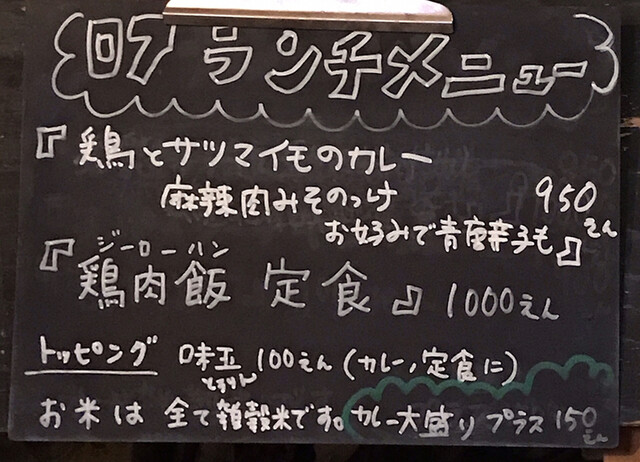 ロフランチメニュー
『鶏とサツマイモのカレー
麻辣肉みそのっけ 950えん
お好みで青唐辛子も』
『鶏肉飯 定食』 1000えん
ジーローハン
トッピング 味玉 100えん (カレー、定食に)
とろりん
お米は 全て雑穀米です。カレー大盛り プラス150えん